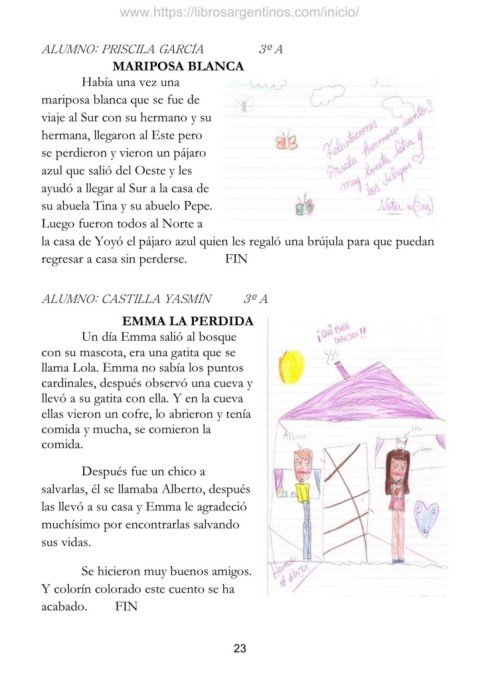 www.https://librosargentinos.com/inicio/
ALUMNO: PRISCILA GARCÍA 3º A
MARIPOSA BLANCA
Había una vez una
mariposa blanca que se fue de
viaje al Sur con su hermano y su
hermana, llegaron al Este pero
se perdieron y vieron un pájaro
azul que salió del Oeste y les
ayudó a llegar al Sur a la casa de
su abuela Tina y su abuelo Pepe.
Luego fueron todos al Norte a
la casa de Yoyó el pájaro azul quien les regaló una brújula para que puedan
regresar a casa sin perderse. FIN
Felicitaciones
Priscila hermoso cuento!!
muy bonita letra y
los dibujos
Nota: 10 (Diez)
ALUMNO: CASTILLA YASMÍN 3º A
EMMA LA PERDIDA
Un día Emma salió al bosque
con su mascota, era una gatita que se
llama Lola. Emma no sabía los puntos
cardinales, después observó una cueva y
llevó a su gatita con ella. Y en la cueva
ellas vieron un cofre, lo abrieron y tenía
comida y mucha, se comieron la
comida.
Después fue un chico a
salvarlas, él se llamaba Alberto, después
las llevó a su casa y Emma le agradeció
muchísimo por encontrarlas salvando
sus vidas.
Se hicieron muy buenos amigos.
Y colorín colorado este cuento se ha
acabado. FIN
¡QUÉ BIEN
DIBUJAS!!
Alberto
Lola
Emma
Hermoso
el dibujo!
23